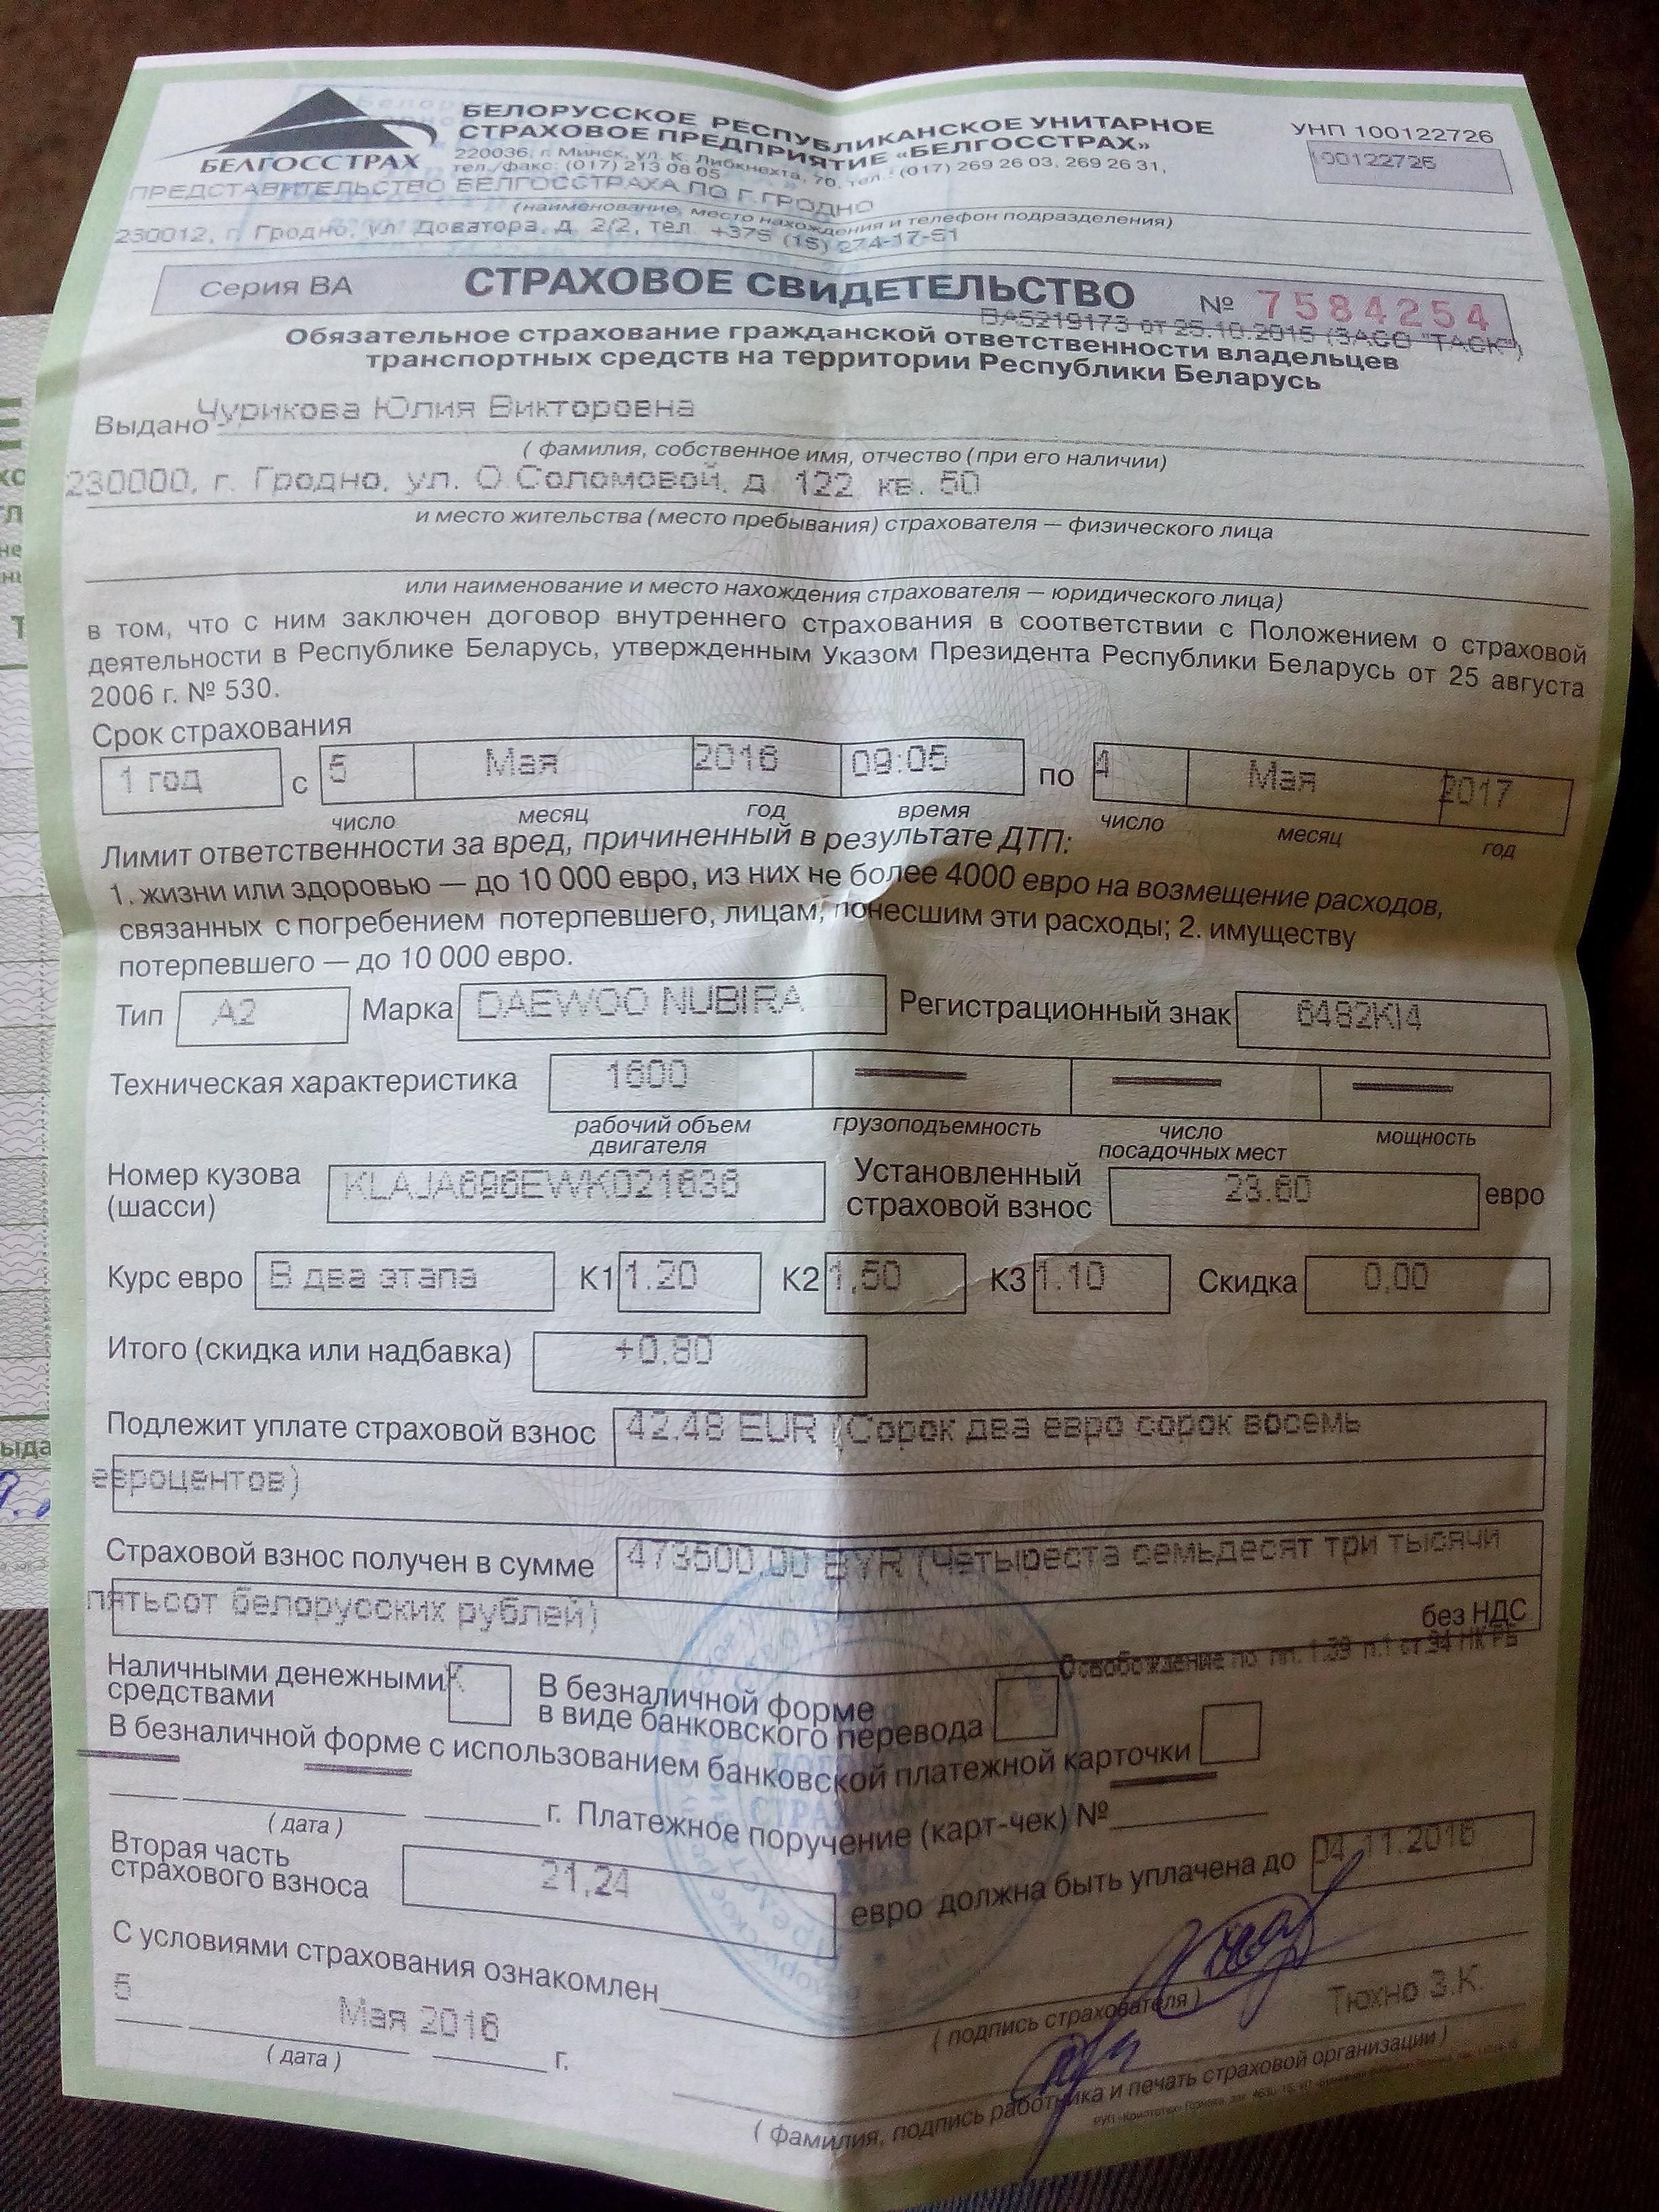 БЕЛГОССТРАХ
БЕЛОРУССКОЕ РЕСПУБЛИКАНСКОЕ УНИТАРНОЕ
СТРАХОВОЕ ПРЕДПРИЯТИЕ «БЕЛГОССТРАХ»
220036, г. Минск, ул. К. Либкнехта, 70, тел.: (017) 269 26 03, 269 26 31,
тел./факс: (017) 213 08 05
УНП 100122726
100122726
ПРЕДСТАВИТЕЛЬСТВО БЕЛГОССТРАХА ПО Г.ГРОДНО
(наименование, место нахождения и телефон подразделения)
230012, г. Гродно, ул. Доватора, д. 2/2, тел. +375 (15) 274-17-51
Серия ВА СТРАХОВОЕ СВИДЕТЕЛЬСТВО № 7584254
ВА5219173 от 25.10.2015 (ЗАСО "ТАСК")
Обязательное страхование гражданской ответственности владельцев
транспортных средств на территории Республики Беларусь
Выдано Чурикова Юлия Викторовна
( фамилия, собственное имя, отчество (при его наличии)
230000, г. Гродно, ул. О.Соломовой, д. 122 кв. 50
и место жительства (место пребывания) страхователя — физического лица
или наименование и место нахождения страхователя — юридического лица)
в том, что с ним заключен договор внутреннего страхования в соответствии с Положением о страховой
деятельности в Республике Беларусь, утвержденным Указом Президента Республики Беларусь от 25 августа
2006 г. № 530.
Срок страхования
1 год с 5 Мая 2016 09:05 по 4 Мая 2017
число месяц год время число месяц год
Лимит ответственности за вред, причиненный в результате ДТП:
1. жизни или здоровью — до 10 000 евро, из них не более 4000 евро на возмещение расходов,
связанных с погребением потерпевшего, лицам, понесшим эти расходы; 2. имуществу
потерпевшего — до 10 000 евро.
Тип А2 Марка DAEWOO NUBIRA Регистрационный знак 6482KI4
Техническая характеристика 1600
рабочий объем двигателя грузоподъемность число посадочных мест мощность
Номер кузова (шасси) KLAJA696EWK021636 Установленный страховой взнос 23.60 евро
Курс евро В два этапа К1 1.20 К2 1,50 К3 1.10 Скидка 0,00
Итого (скидка или надбавка) +0.80
Подлежит уплате страховой взнос 42.48 EUR (Сорок два евро сорок восемь
евроцентов)
Страховой взнос получен в сумме 473500.00 BYR (Четыреста семьдесят три тысячи
пятьсот белорусских рублей)
без НДС
Освобождение по пп. 1.39 п.1 ст 94 НК РБ
Наличными денежными средствами X В безналичной форме
в виде банковского перевода
В безналичной форме с использованием банковской платежной карточки
г. Платежное поручение (карт-чек) №
( дата )
Вторая часть страхового взноса 21,24 евро должна быть уплачена до 04.11.2016
С условиями страхования ознакомлен
( подпись страхователя )
5 Мая 2016 г.
( дата )
Тюхно З.К.
( фамилия, подпись работника и печать страховой организации )